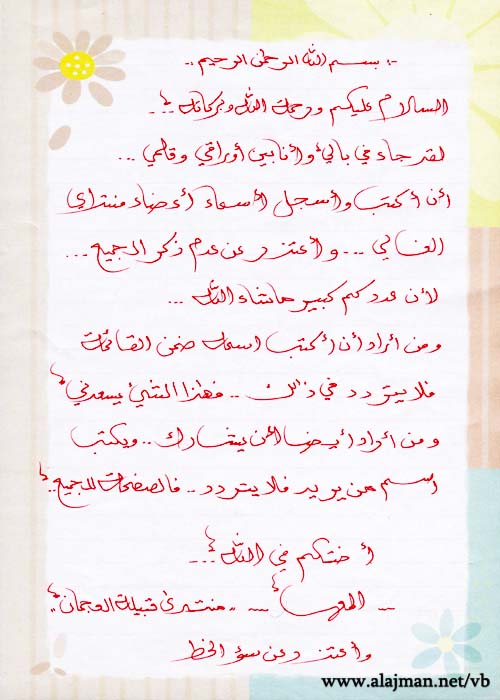 .. بسم الله الرحمن الرحيم ..
السلام عليكم ورحمة الله وبركاته ...
لقد جاء في بالي وأنا بين أوراقي وقلمي ...
أن أكتب وأسجل أسماء أعضاء منتداي
الغالي ... وأعتذر عن عدم ذكر الجميع ...
لأن عددكم كبير ماشاء الله ...
ومن أراد أن أكتب اسمه ضمن القائمة
فلا يتردد في ذلك .. فهذا الشيء يسعدني
ومن أراد أيضا أن يشارك .. ويكتب
اسم من يريد فلا يتردد .. فالصفحات للجميع ..
أختكم في الله ...
المها ,, منتدى قبيلة العجمان ,,
وأعتذر عن سوء الخط
www.alajman.net/vb